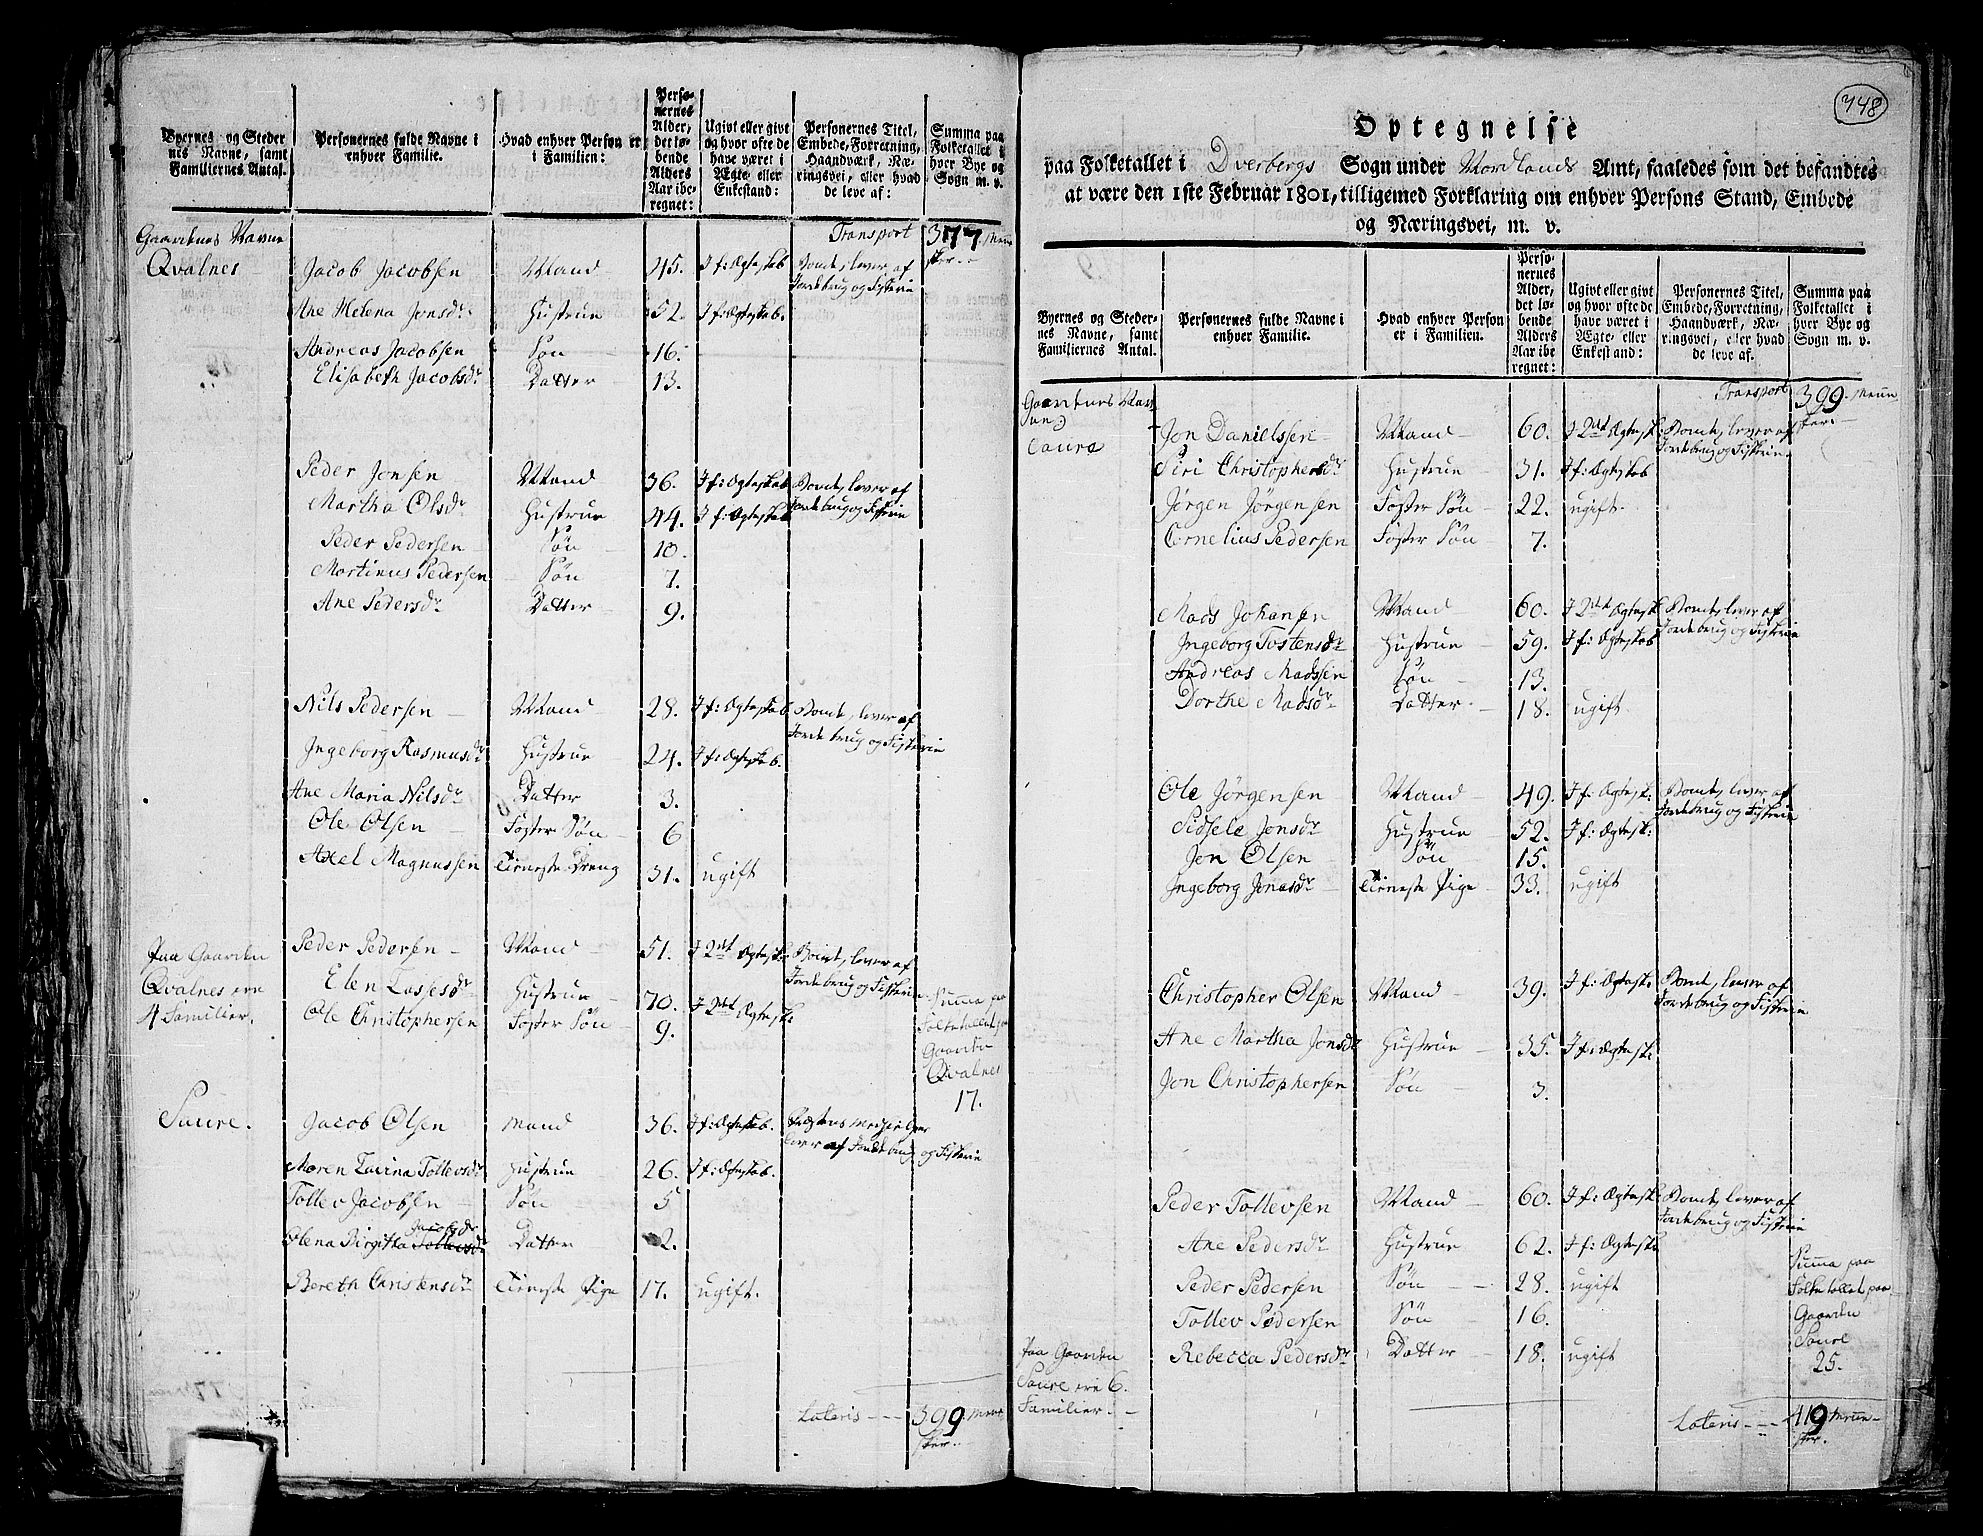 Byernes og Steder
nes Navne, samt
Familiernes Antal.
Personernes fulde Navne i
enhver Familie.
Hvad enhver Person er
i Familien:
Perso-
nernes
Alder,
det lø-
bende
Alders
Aar ibe
regnet:
Ugivt eller givt
og hvor ofte de
have været i
Ægte- eller
Enkestand:
Personernes Titel,
Embede, Forretning,
Haandværk, Næ-
ringsvei, eller hvad
de leve af:
Summa paa
Folketallet i
hver Bye og
Sogn m. v.
Gaardenes Navne Transport 377 Menne
sker.
Qvalnes Jacob Jacobsen Mand 45. I f: Ægteskab Bonde, lever af
Jordebrug og Fiskerie
Ane Helena Jonsdr Hustrue 52. I f: Ægteskab.
Andreas Jacobsen Søn 16.
Elisabeth Jacobsdr Datter 13.
Peder Jonsen Mand 36. I f: Ægteskab Bonde, lever af
Jordebrug og Fiskerie
Martha Olsdr Hustrue 44. I f: Ægteskab
Peder Pedersen Søn 10.
Martinus Pedersen Søn 7.
Ane Pedersdr Datter 9.
Nils Pedersen Mand 28. I f: Ægteskab Bonde, lever af
Jordebrug og Fiskerie
Ingeborg Rasmusdr Hustrue 24. I f: Ægteskab.
Ane Maria Nilsdr Datter 3.
Ole Olsen Foster Søn 6
Axel Magnussen Tieneste Dreng 31. ugift
Paa Gaarden Peder Pedersen Mand 51. I 2det Ægtesk: Bonde, lever af
Jordebrug og Fiskerie
Qvalnes ere Elen Lassesdr Hustrue 70. I 2det Ægtesk: Summa paa
4 Familier. Ole Christophersen Foster Søn 9. Folketallet paa
Gaarden
Qvalnes
17.
Saure. Jacob Olsen Mand 36. I f: Ægteskab. Præstens Medhielper
lever af Jordebrug og Fiskerie
Maren Lavina Tollevsdr Hustrue 26. I f: Ægteskab.
Tollev Jacobsen Søn 5
Jacobsdr
Olena Birgitta Tollevsdr Datter 2.
Bereth Christensdr Tieneste Pige 17. ugift.
Lateris 399 Menne
sker.
748
Optegnelse
paa Folketallet i Dverbergs Sogn under Nordlands Amt, saaledes som det befandtes
at være den 1ste Februar 1801, tilligemed Forklaring om enhver Persons Stand, Embede
og Næringsvei, m. v.
Byernes og Steder-
nes Navne, samt
Familiernes Antal.
Personernes fulde Navne i
enhver Familie.
Hvad enhver Person
er i Familien.
Perso-
nernes
Alder,
det lø-
bende
Alders
Aar ibe
regnet:
Ugivt eller givt
og hvor ofte de
have været i
Ægte- eller
Enkestand:
Personernes Titel,
Embede, Forretning,
Haandværk, Næ-
ringsvei, eller hvad
de leve af.
Summa paa
Folketallet i
hver Bye og
Sogn m. v.
Gaardenes Nav Transport 399 Menne
ne sker.
Saure Jon Danielssen Mand 60. I 2det Ægtesk: Bonde, lever af
Jordebrug og Fiskerie
Siri Christophersdr Hustrue 31. I f: Ægteskab
Jørgen Jørgensen Foster Søn 22. ugift.
Cornelius Pedersen Foster Søn 7.
Mads Johansen Mand 60. I 2det Ægtesk: Bonde, lever af
Jordebrug og Fiskerie
Ingeborg Tostensdr Hustrue 59. I f: Ægteskab
Andreas Madssen Søn 13.
Dorthe Madsdr Datter 18. ugift.
Ole Jørgensen Mand 49. I f: Ægtesk: Bonde, lever af
Jordebrug og Fiskerie
Sidsele Jonsdr Hustrue 52. I f: Ægtesk:
Jon Olsen Søn 15.
Ingeborg Jonasdr Tieneste Pige 33. ugift
Christopher Olsen Mand 39. I f: Ægtesk: Bonde, lever af
Jordebrug og Fiskerie
Ane Martha Jonsdr Hustrue 35. I f: Ægtesk:
Jon Christophersen Søn 3.
Peder Tollevsen Mand 60. I f: Ægtesk: Bonde, lever af
Jordebrug og Fiskerie
Ane Pedersdr Hustrue 62. I f: Ægtesk.
Peder Pedersen Søn 28. ugift
Tollev Pedersen Søn 16.
Rebecca Pedersdr Datter 18. ugift
Summa paa
Folketallet paa
Gaarden
Saure
25.
Paa Gaarden
Saure ere 6.
Familier.
Lateris 419 Menne
sker.